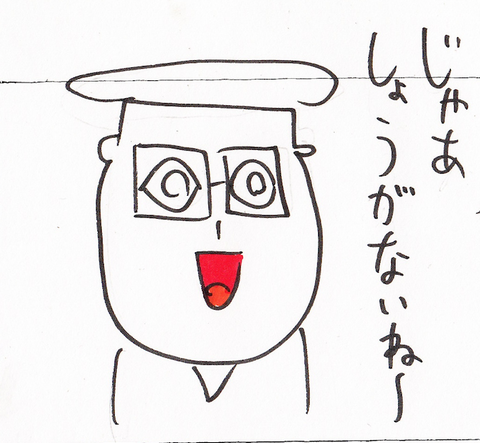 じゃあ
しょうがないね〜